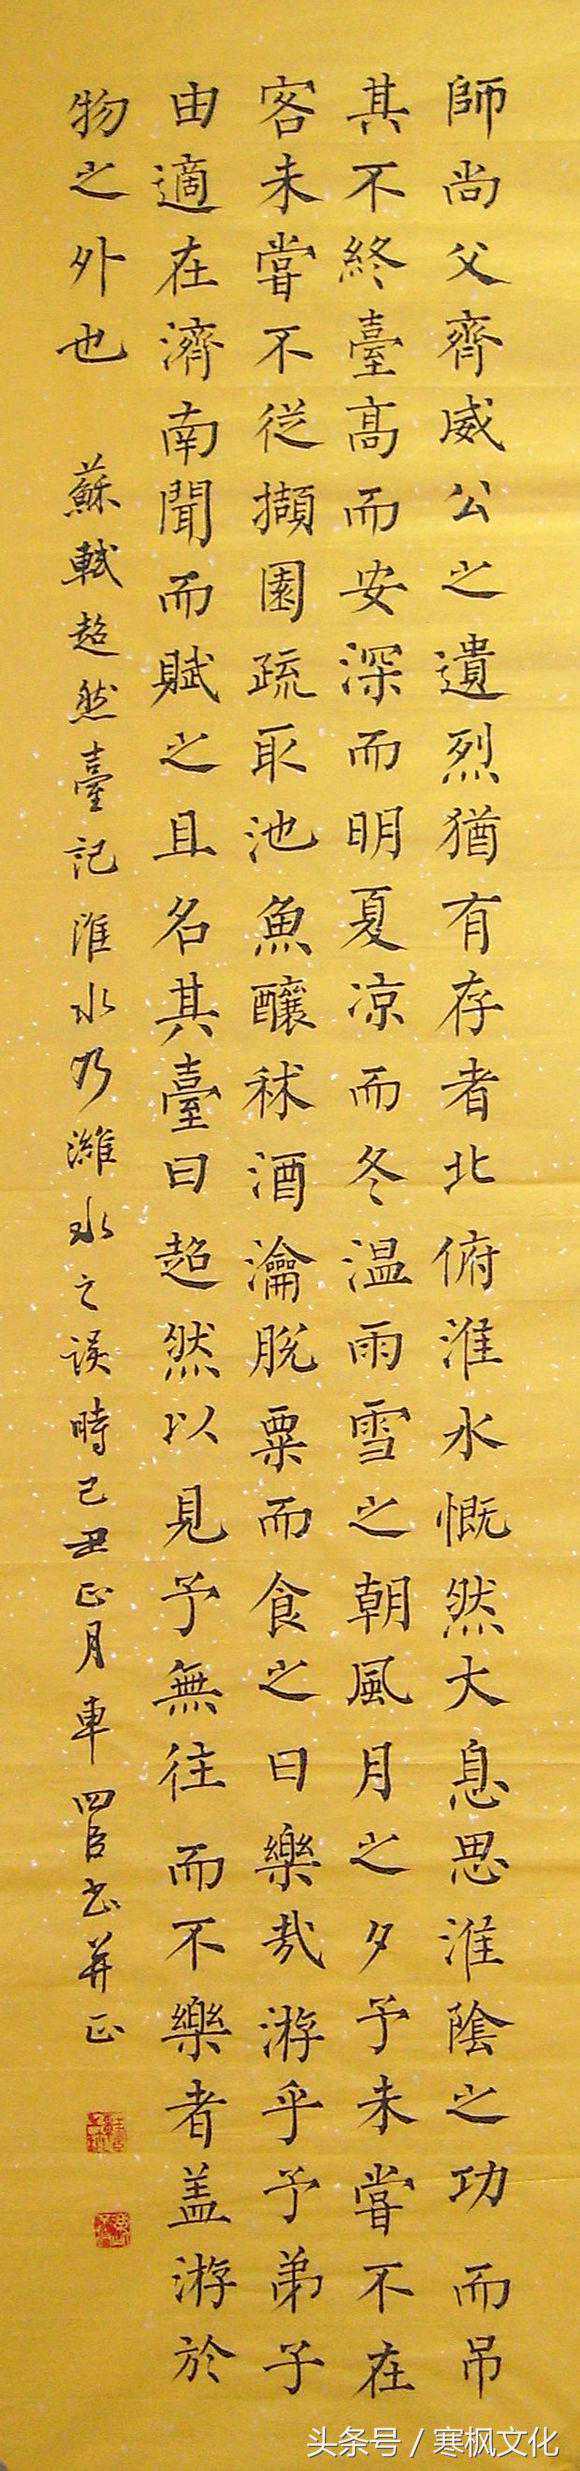 師尚父齊威公之遺烈猶有存者北俯淮水慨然大息思淮陰之功而吊
其不終臺高而安深而明夏凉而冬温雨雪之朝風月之夕予未嘗不在
客未嘗不從擷園疏取池魚釀秫酒瀹脫粟而食之曰樂哉游乎予弟子
由適在濟南聞而賦之且名其臺曰超然以見予無往而不樂者盖游於
物之外也 蘇軾超然臺記淮水乃濰水之误時己丑正月車四臣書并正
头条号 / 寒枫文化